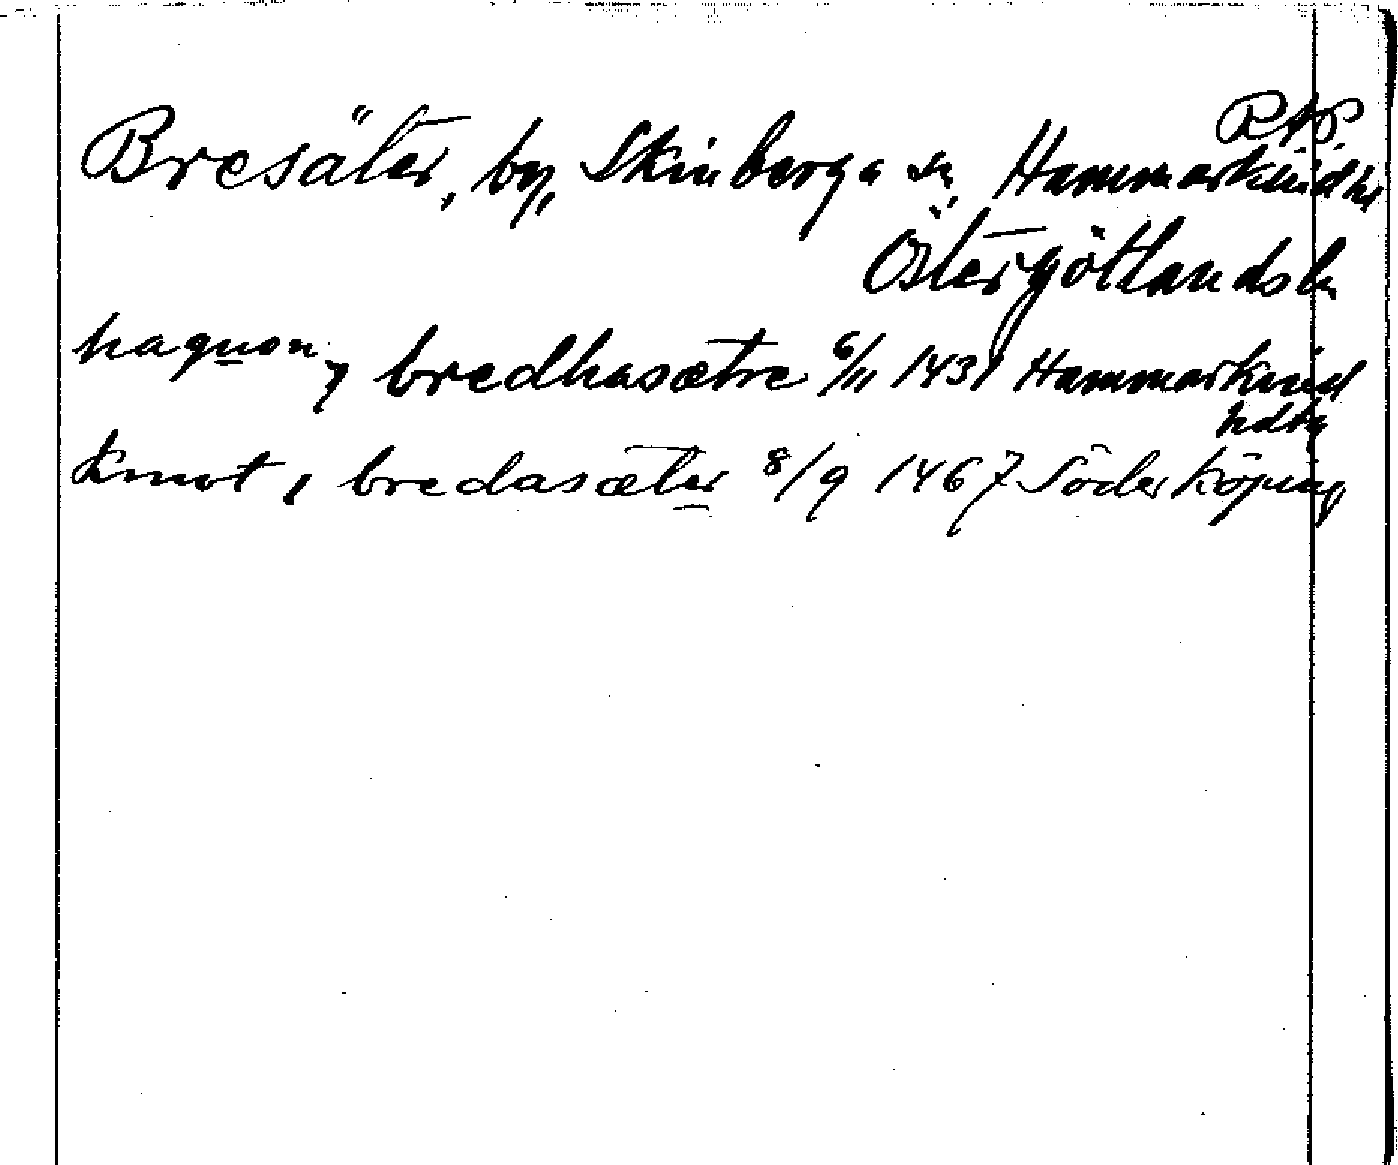 RAP.
Bresäter, by, Skönberga sn, Hammarkinds hd
Östergötlands l.
haquon y bredhasætre 6/11 1431 Hammarkind
hdtg
Knut i bredasæter 8/9 1467 Söderköping